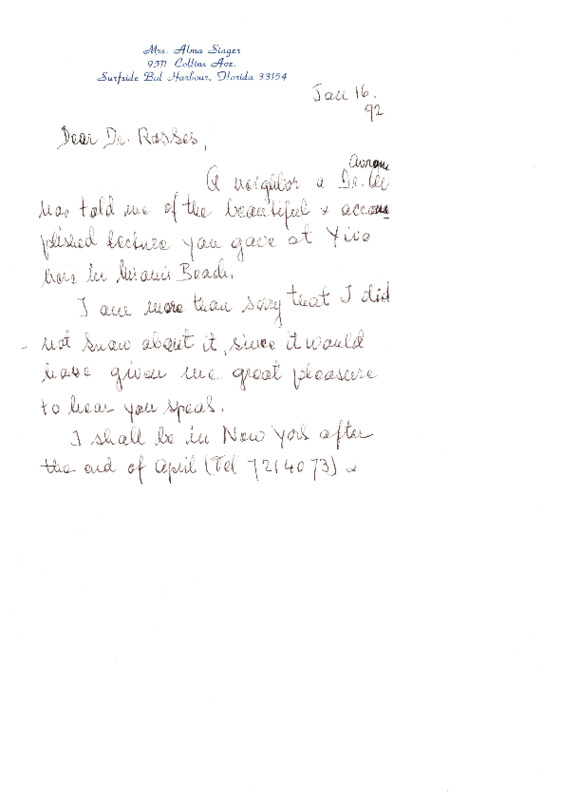 Mrs. Alma Singer
9511 Collins Ave.
Surfside Bal Harbour, Florida 33154
Jan 16.
92
Dear Dr. Rosses,
A neighbor a Dr.
has told me of the beautiful & accom
plished lecture you gave at Yivo
here in Miami Beach.
I am more than sorry that I did
not know about it, since it would
have given me great pleasure
to hear you speak.
I shall be in New York after
the end of April (Tel 7214073) &